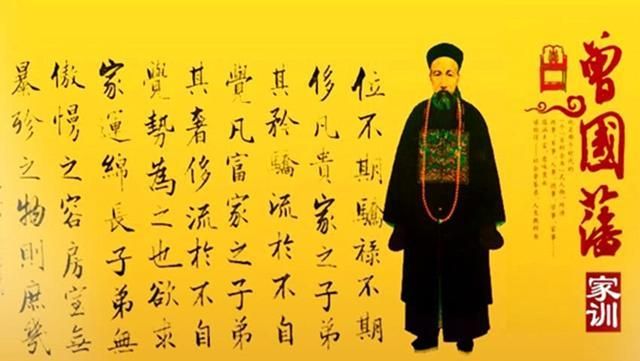 曾國藩
家训
位不期驕祿不期
侈凡貴家之子弟
其矜驕流於不自
覺凡富家之子弟
其奢侈流於不自
覺勢為之也欲求
家運綿長子弟無
傲慢之容房室無
暴殄之物則庶幾